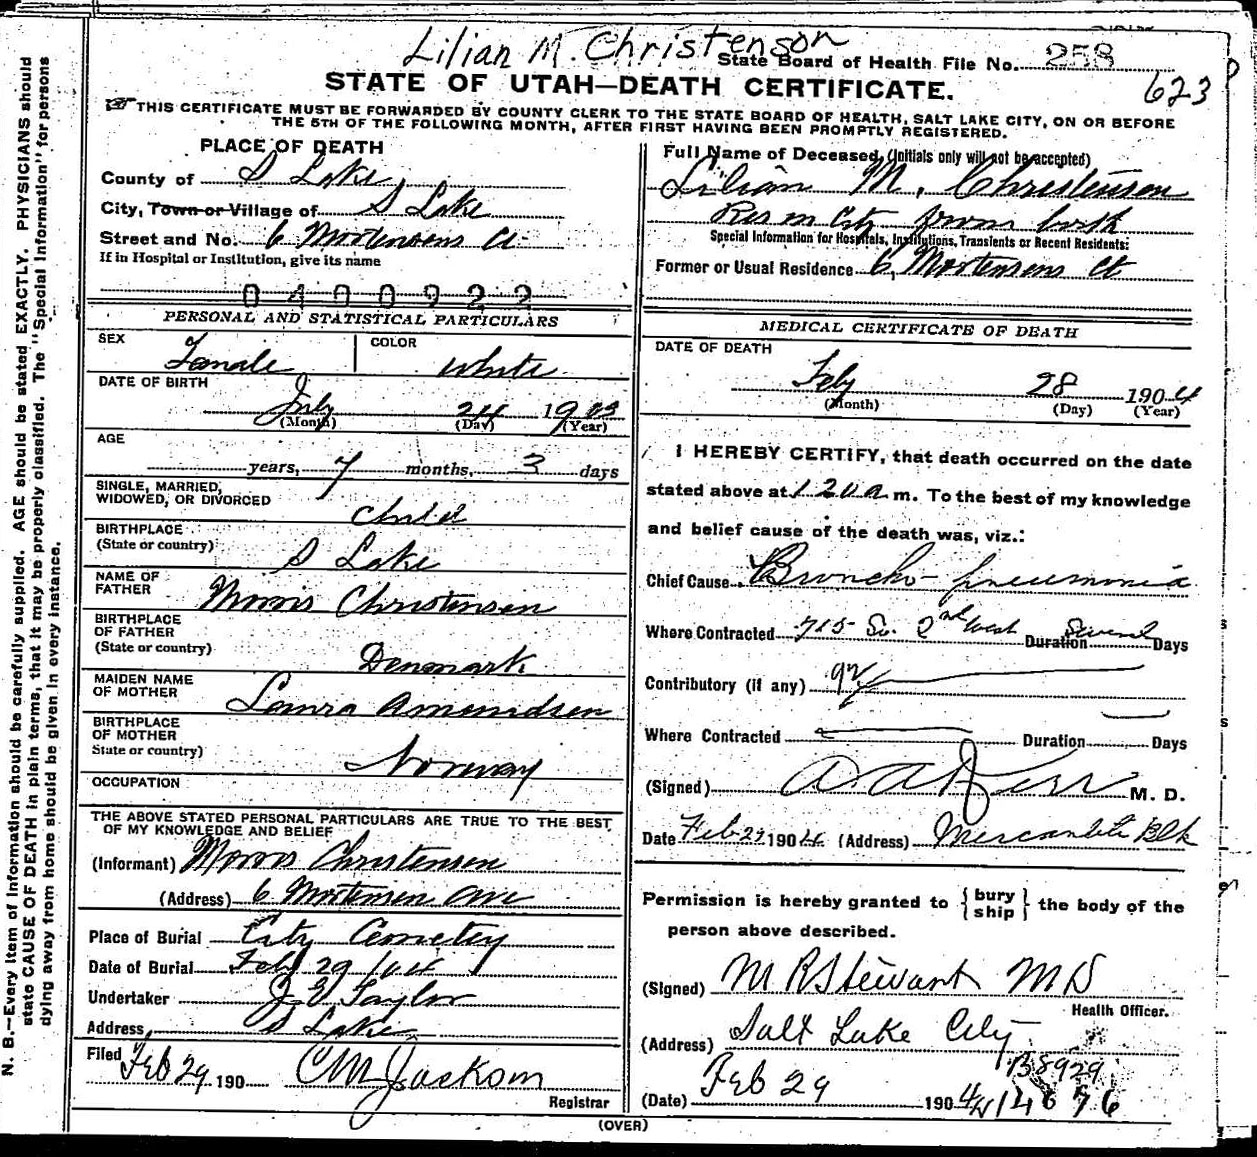 Lilian M. Christenson
State Board of Health File No. 258
623
STATE OF UTAH—DEATH CERTIFICATE.
THIS CERTIFICATE MUST BE FORWARDED BY COUNTY CLERK TO THE STATE BOARD OF HEALTH, SALT LAKE CITY, ON OR BEFORE
THE 5TH OF THE FOLLOWING MONTH, AFTER FIRST HAVING BEEN PROMPTLY REGISTERED.
N. B.—Every item of Information should be carefully supplied. AGE should be stated EXACTLY. PHYSICIANS should
state CAUSE OF DEATH in plain terms, that it may be properly classified. The "Special Information" for persons
dying away from home should be given in every instance.
PLACE OF DEATH
County of S Lake
City, Town or Village of S Lake
Street and No. 6 Mortensens Ct
If in Hospital or Institution, give its name
0400922
PERSONAL AND STATISTICAL PARTICULARS
SEX Female COLOR White
DATE OF BIRTH
July 24 1903
(Month) (Day) (Year)
AGE
years, 7 months, 3 days
SINGLE, MARRIED,
WIDOWED, OR DIVORCED Child
BIRTHPLACE
(State or country) S Lake
NAME OF
FATHER Morris Christensen
BIRTHPLACE
OF FATHER
(State or country) Denmark
MAIDEN NAME
OF MOTHER Laura Amundsen
BIRTHPLACE
OF MOTHER
State or country) Norway
OCCUPATION
THE ABOVE STATED PERSONAL PARTICULARS ARE TRUE TO THE BEST
OF MY KNOWLEDGE AND BELIEF
(Informant) Morris Christensen
(Address) 6 Mortensen Ave
Place of Burial City Cemetery
Date of Burial Feb 29/04
Undertaker J E Taylor
Address, S Lake
Filed Feb 29 190 CM Jackson
Registrar
Full Name of Deceased, (Initials only will not be accepted)
Lilian M. Christensen
Res in City from birth
Special Information for Hospitals, Institutions, Transients or Recent Residents:
Former or Usual Residence 6, Mortensens Ct
MEDICAL CERTIFICATE OF DEATH
DATE OF DEATH
Feby 28 1904
(Month) (Day) (Year)
I HEREBY CERTIFY, that death occurred on the date
stated above at 1 20 a m. To the best of my knowledge
and belief cause of the death was, viz.:
Chief Cause Broncho-pneumonia
Where Contracted 715 So. 2nd West Duration Several Days
Contributory (if any)
Where Contracted Duration Days
(Signed) M. D.
Date Feb 29 1904 (Address) Mercantile Blk
Permission is hereby granted to {bury ship} the body of the
person above described.
(Signed) M R Stewart M D
Health Officer.
(Address) Salt Lake City
B8929
(Date) Feb 29 1904 14676
(OVER)